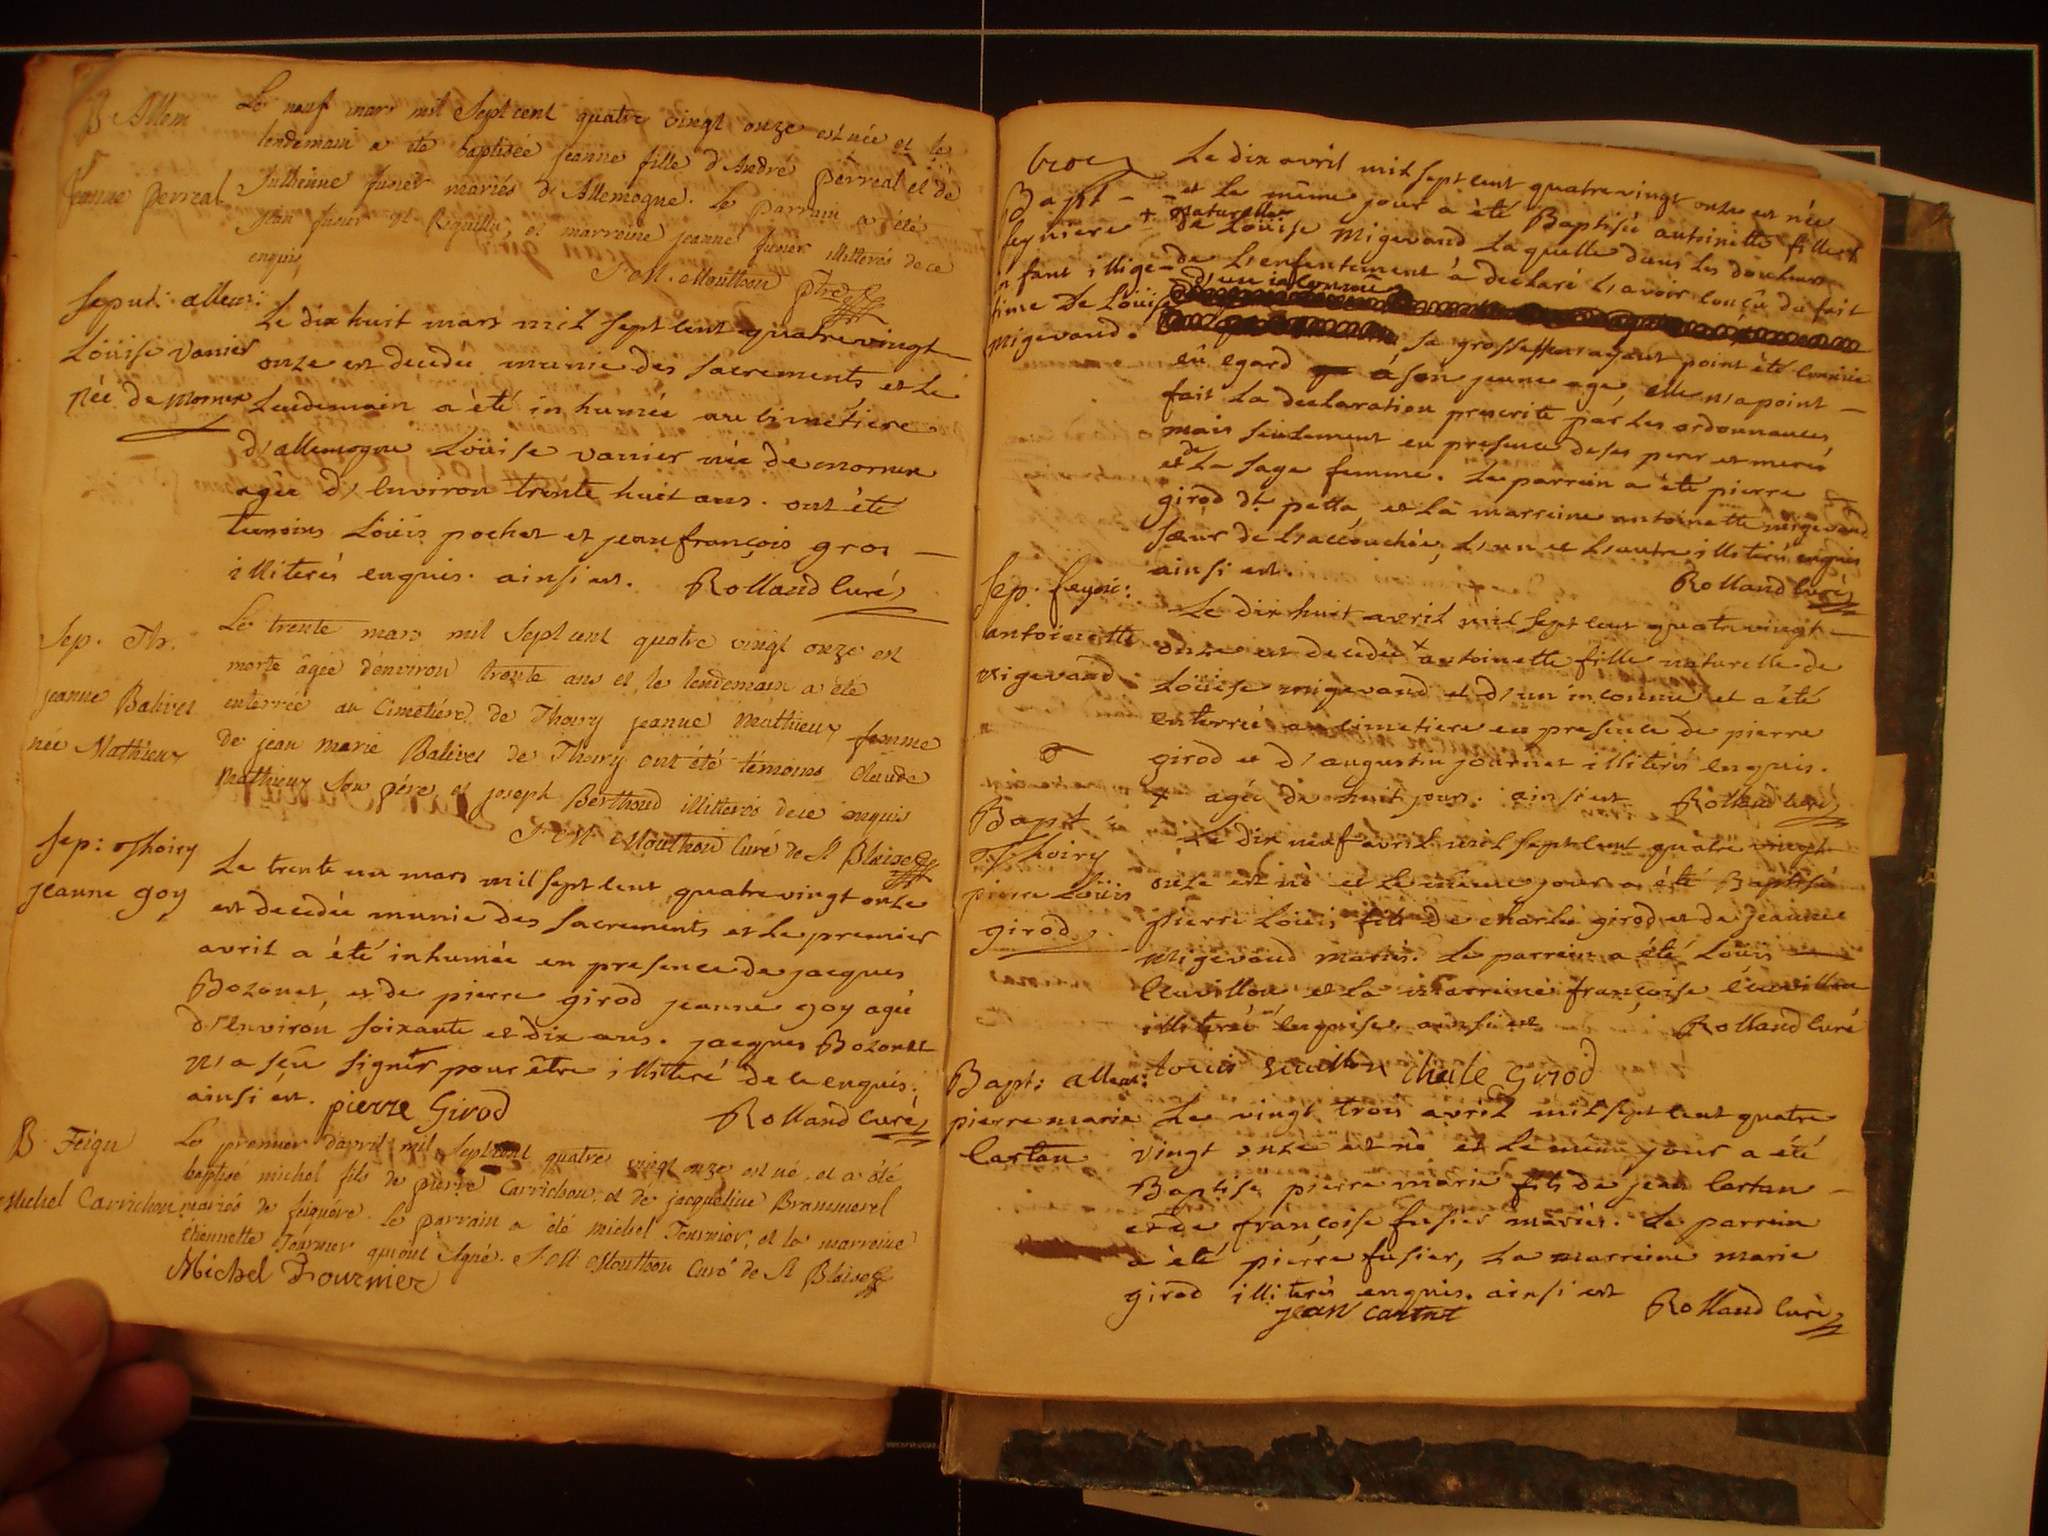 B Allem
Le neuf mars mil Sept cent quatre vingt onze est née et le
lendemain a été baptisée jeanne fille d'André perreal et de
Jeanne perreal
Jullienne fusier mariés d'Allemogne. Le parrain a été
jean fusier et marreine jeanne fusier illitterés de ce
enquis
J. M. Mouthon ptre
Sepul: allem:
Loüise vanier
née de mornex
Le dix huit mars mil sept cent quatre vingt
onze est decedée munie des sacrements et le
Lendemain a èté inhumée au cimetiere
d'allemogne Loüise vanier née de mornex
agée d'environ trente huit ans. ont ète
temoins Loüis pochat et jean françois gros
illiterés enquis. ainsi est. Rolland curé
Sep. Th.
jeanne Balivet
née Mathieux
Le trente mars mil Sept cent quatre vingt onze est
morte âgée d'environ trente ans et le lendemain a été
enterrée au Cimetiére de Thoiry jeanne Mathieux femme
de jean marie Balivet de Thoiry ont été témoins Claude
Mathieux son pére et joseph Berthoud illitterés de ce enquis
J. M. Mouthon Curé de St Blaise
Sep: Thoiry
jeanne goy
Le trente un mars mil sept cent quatre vingt onze
est decedée munie des sacrements et le premier
avril a été inhumée en presence de jacques
Bozonet, et de pierre girod jeanne goy agée
d'environ soixante et dix ans. jacques Bozonet
n'a sçu signér pour être illiteré de ce enquis.
ainsi ést. pierre Girod
Rolland curé
B. Feign
Michel Carrichon
Le premier d'avril mil Sept cent quatre vingt onze est né, et a été
baptisé michel fils de pierre Carrichon, et de jacqueline Brammerel
mariés de feignére. le parrain a été michel Fournier, et la marreine
Étiennette Fournier qui ont signé. J. M. Mouthon Curé de St Blaise
Michel Fournier
Bapt
feyniere
enfant illige-
time De Loüise
migevand.
Le dix avril mil sept cent quatre vingt onze est née
et le même jour a èté Baptisée antoinette fille
+ naturelle
de Loüise migevand Laquelle dans les douleurs
de L'enfentement à declaré L'avoir conçû du fait
d'un inconnu
sa grossesse n'ayant point été connüe
eû egard à son jeune age, elle n'a point
fait La declaration prescrite par les ordonnances,
mais seulement en presence de ses pere et mere
et de La sage femme. Le parrein a èté pierre
girod dt. petta et La marreine antoinette migevand
sœur de L'accouchée, L'un et L'autre illiterés enquis
ainsi est.
Rolland curé
Sep. feyni:
antoinette
migevand
Le dix huit avril mil sept cent quatre vingt
onze est decedée + antoinette fille naturelle de
Loüise migevand et d'un inconnu et a été
enterrée au cimetiere en presence de pierre
girod et d'augustin journet illiterés enquis.
+ agée de huit jours. ainsi est Rolland curé
Bapt
Thoiry
pierre Loüis
girod
Le dix neuf avril mil sept cent quatre vingt
onze est né et le même jour a été Baptisé
pierre Loüis fils de charle girod et de jeanne
migevand mariés. Le parrein a été Loüis
Ecuvillon et La marreine françoise Ecuvillon
illiterée enquise. ainsi est Rolland curé
Louis Charle Girod
Bapt: allem:
pierre marie
Cartan
Le vingt trois avril mil sept cent quatre
vingt onze est né et le même jour a été
Baptisé pierre marie fils de jean Cartan
et de françoise fusier mariés. Le parrein
a été pierre fusier, La marreine marie
girod illiterés enquis. ainsi est
jean
Rolland curé